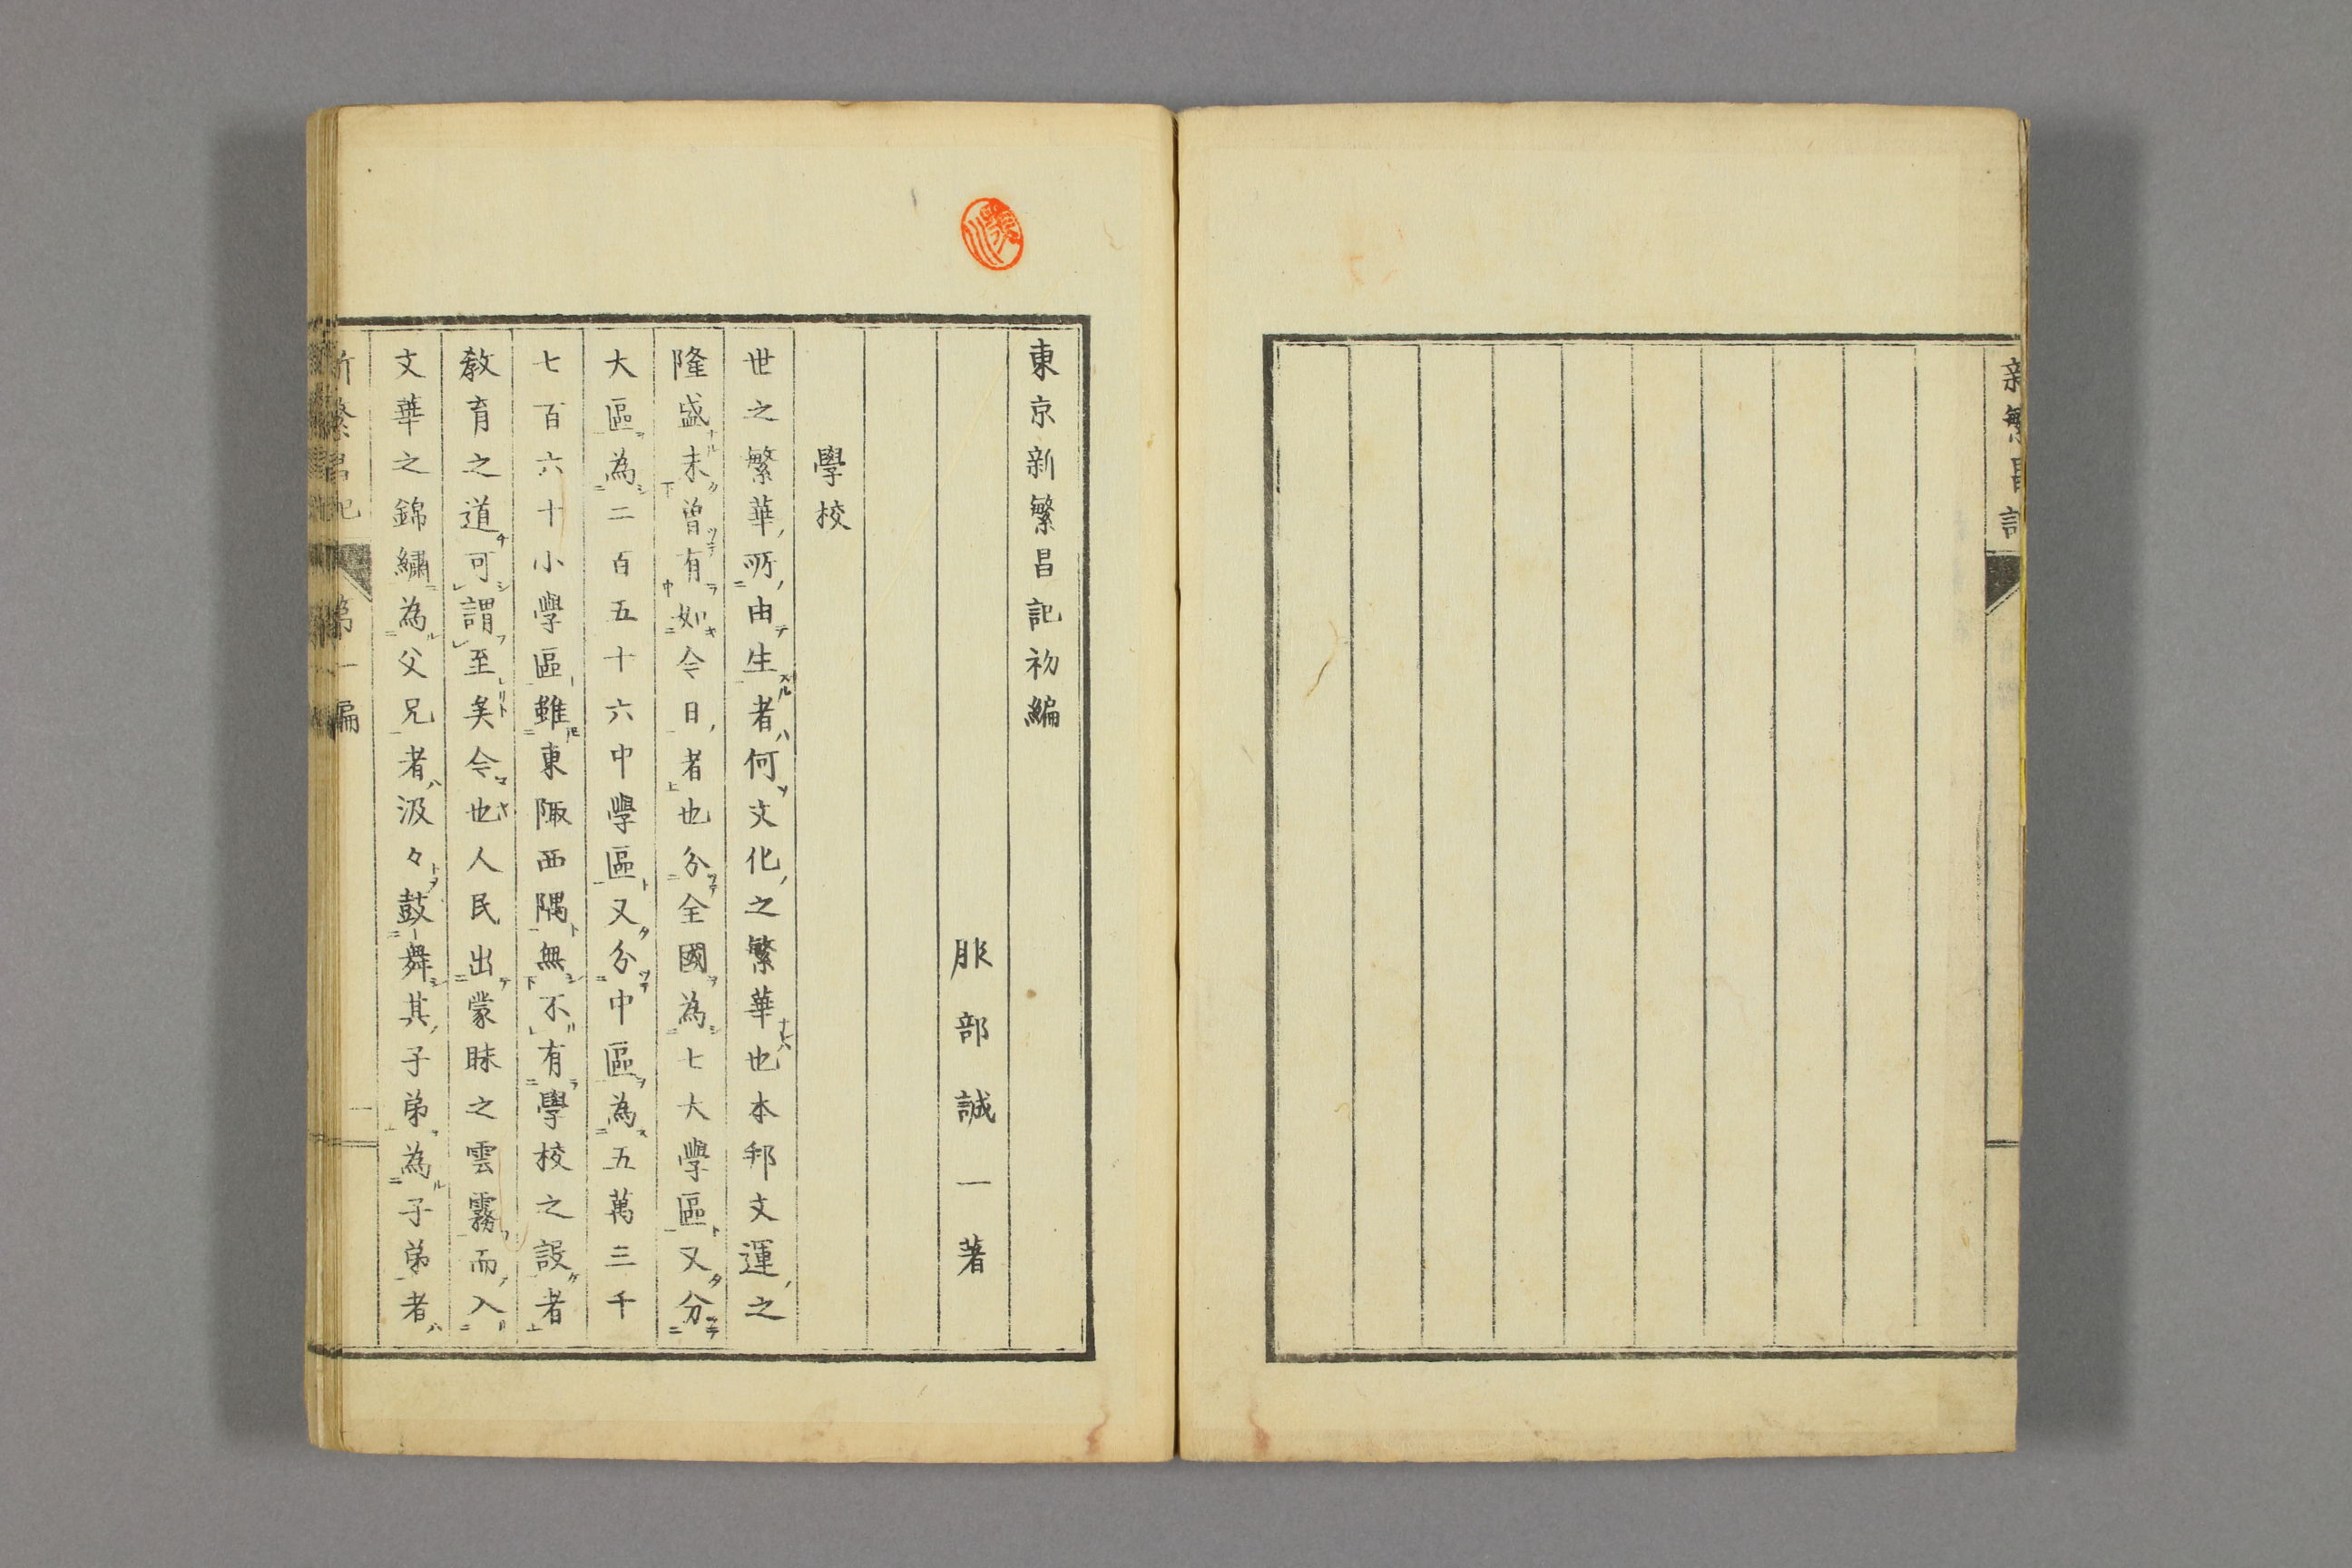 新繁昌記
東京新繁昌記初編
服部誠一著
學校
世之繁華所由生者何文化之繁華也本邦文運之
隆盛未曾有如今日者也分全國為七大學區又分
大區為二百五十六中學區又分中區為五萬三千
七百六十小學區雖東陬西隅無不有學校之設者
教育之道可謂至矣今也人民出蒙昧之雲霧而入
文華之錦繡為父兄者汲々鼓舞其子弟為子弟者
新繁昌記 第一編 一